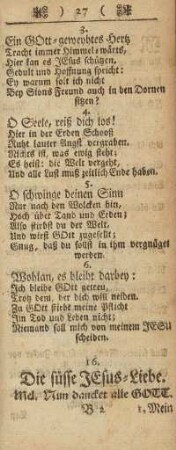 )( 27 )(
3.
Ein GOtt-geweyhtes Hertz
Tracht immer Himmel-wärts,
Hier kan es JEsus schützen.
Gedult und Hoffnung spricht:
Ey warum solt ich nicht
Bey Sions Freund auch in den Dornen
sitzen?
4.
O Seele, reiß dich los!
Hier in der Erden Schooß
Ruht lauter Angst vergraben.
Nichts ist, was ewig steht;
Es heist: die Welt vergeht,
Und alle Lust muß zeitlich Ende haben.
5.
O schwinge deinen Sinn
Nur nach den Wolcken hin,
Hoch über Tand und Erden;
Also stirbst du der Welt,
Und wirst GOtt zugesellt;
Gnug, daß du sollst in ihm vergnüget
werden.
6.
Wohlan, es bleibt darbey:
Ich bleibe GOtt getreu,
Trotz dem, der dich will neiden.
Zu GOtt steht meine Pflicht
Im Tod und Leben nicht;
Niemand soll mich von meinem JESU
scheiden.
16.
Die süsse JEsus-Liebe.
Md. Nun dancket alle GOTT.
B 2
1. Mein